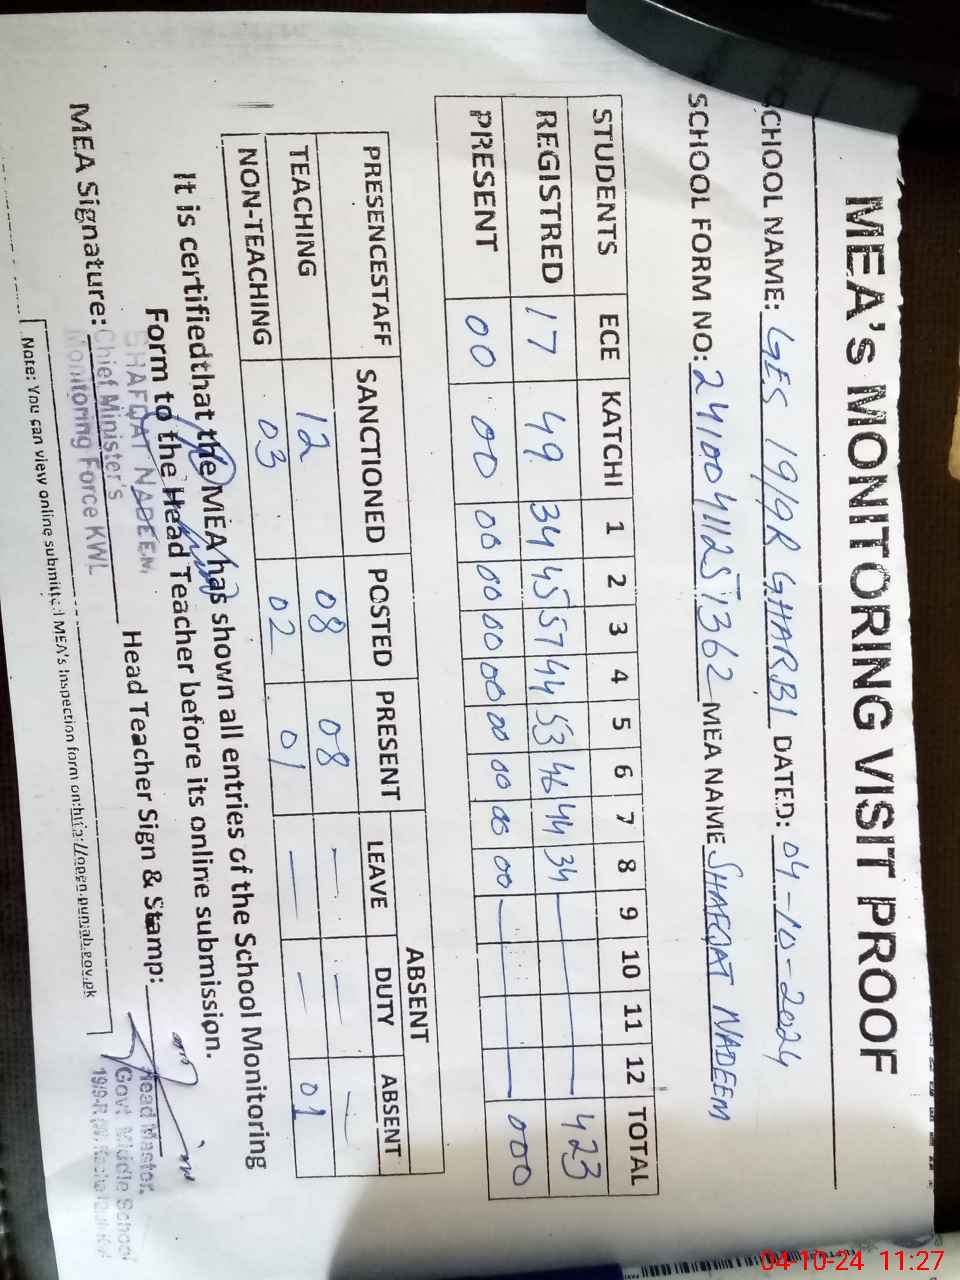 MEA's MONITORING VISIT PROOF
SCHOOL NAME: GES 19/9R GHARBI DATED: 04-10-2024
SCHOOL FORM NO: 24100411251362 MEA NAME SHAFQAT NADEEM
STUDENTS ECE KATCHI 1 2 3 4 5 6 7 8 9 10 11 12 TOTAL
REGISTRED 17 49 34 45 57 44 53 46 44 34 — 423
PRESENT 00 00 00 00 00 00 00 00 00 00 — 000
PRESENCESTAFF SANCTIONED POSTED PRESENT ABSENT
LEAVE DUTY ABSENT
TEACHING 12 08 08 — — —
NON-TEACHING 03 02 01 — — 01
It is certifiedthat the MEA has shown all entries of the School Monitoring
Form to the Head Teacher before its online submission.
MEA Signature: Head Teacher Sign & Stamp:
SHAFQAT NADEEM
Chief Minister's
Monitoring Force KWL
Head Master,
Govt Middle School
19/9-R
Note: You can view online submitted MEA's Inspection form on:http://open.punjab.gov.pk
04-10-24 11:27